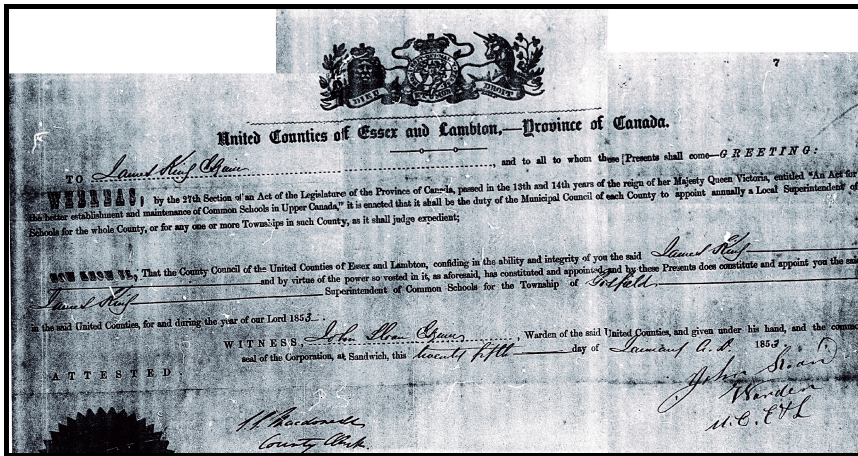 7
DIEU ET MON DROIT
United Counties of Essex and Lambton,—Province of Canada.
TO James King Esquire, and to all to whom these Presents shall come—GREETING:
WHEREAS, by the 27th Section of an Act of the Legislature of the Province of Canada, passed in the 13th and 14th years of the reign of her Majesty Queen Victoria, entitled "An Act for
the better establishment and maintenance of Common Schools in Upper Canada," it is enacted that it shall be the duty of the Municipal Council of each County to appoint annually a Local Superintendent of
Schools for the whole County, or for any one or more Townships in such County, as it shall judge expedient;
NOW KNOW YE, That the County Council of the United Counties of Essex and Lambton, confiding in the ability and integrity of you the said James King
and by virtue of the power so vested in it, as aforesaid, has constituted and appointed, and by these Presents does constitute and appoint you the said
James King Superintendent of Common Schools for the Township of Gosfield
in the said United Counties, for and during the year of our Lord 1853.
WITNESS, John Sloan Esquire, Warden of the said United Counties, and given under his hand, and the common
seal of the Corporation, at Sandwich, this twenty fifth day of January A.D. 1853
ATTESTED
John Sloan
Warden
U.C. E & L
Macdonell
County Clerk.